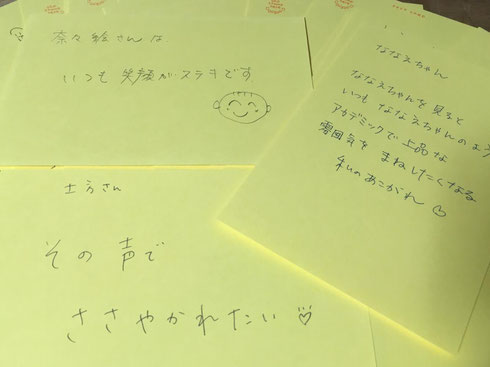 奈々絵さんは
いつも 笑顔が ステキです
土方さん
その 声で
ささやかれたい
ななえちゃん
ななえちゃんを 見ると
いつも ななえちゃんの
アカデミックで 上品な
雰囲気を まねしたくなる
私の あこがれ